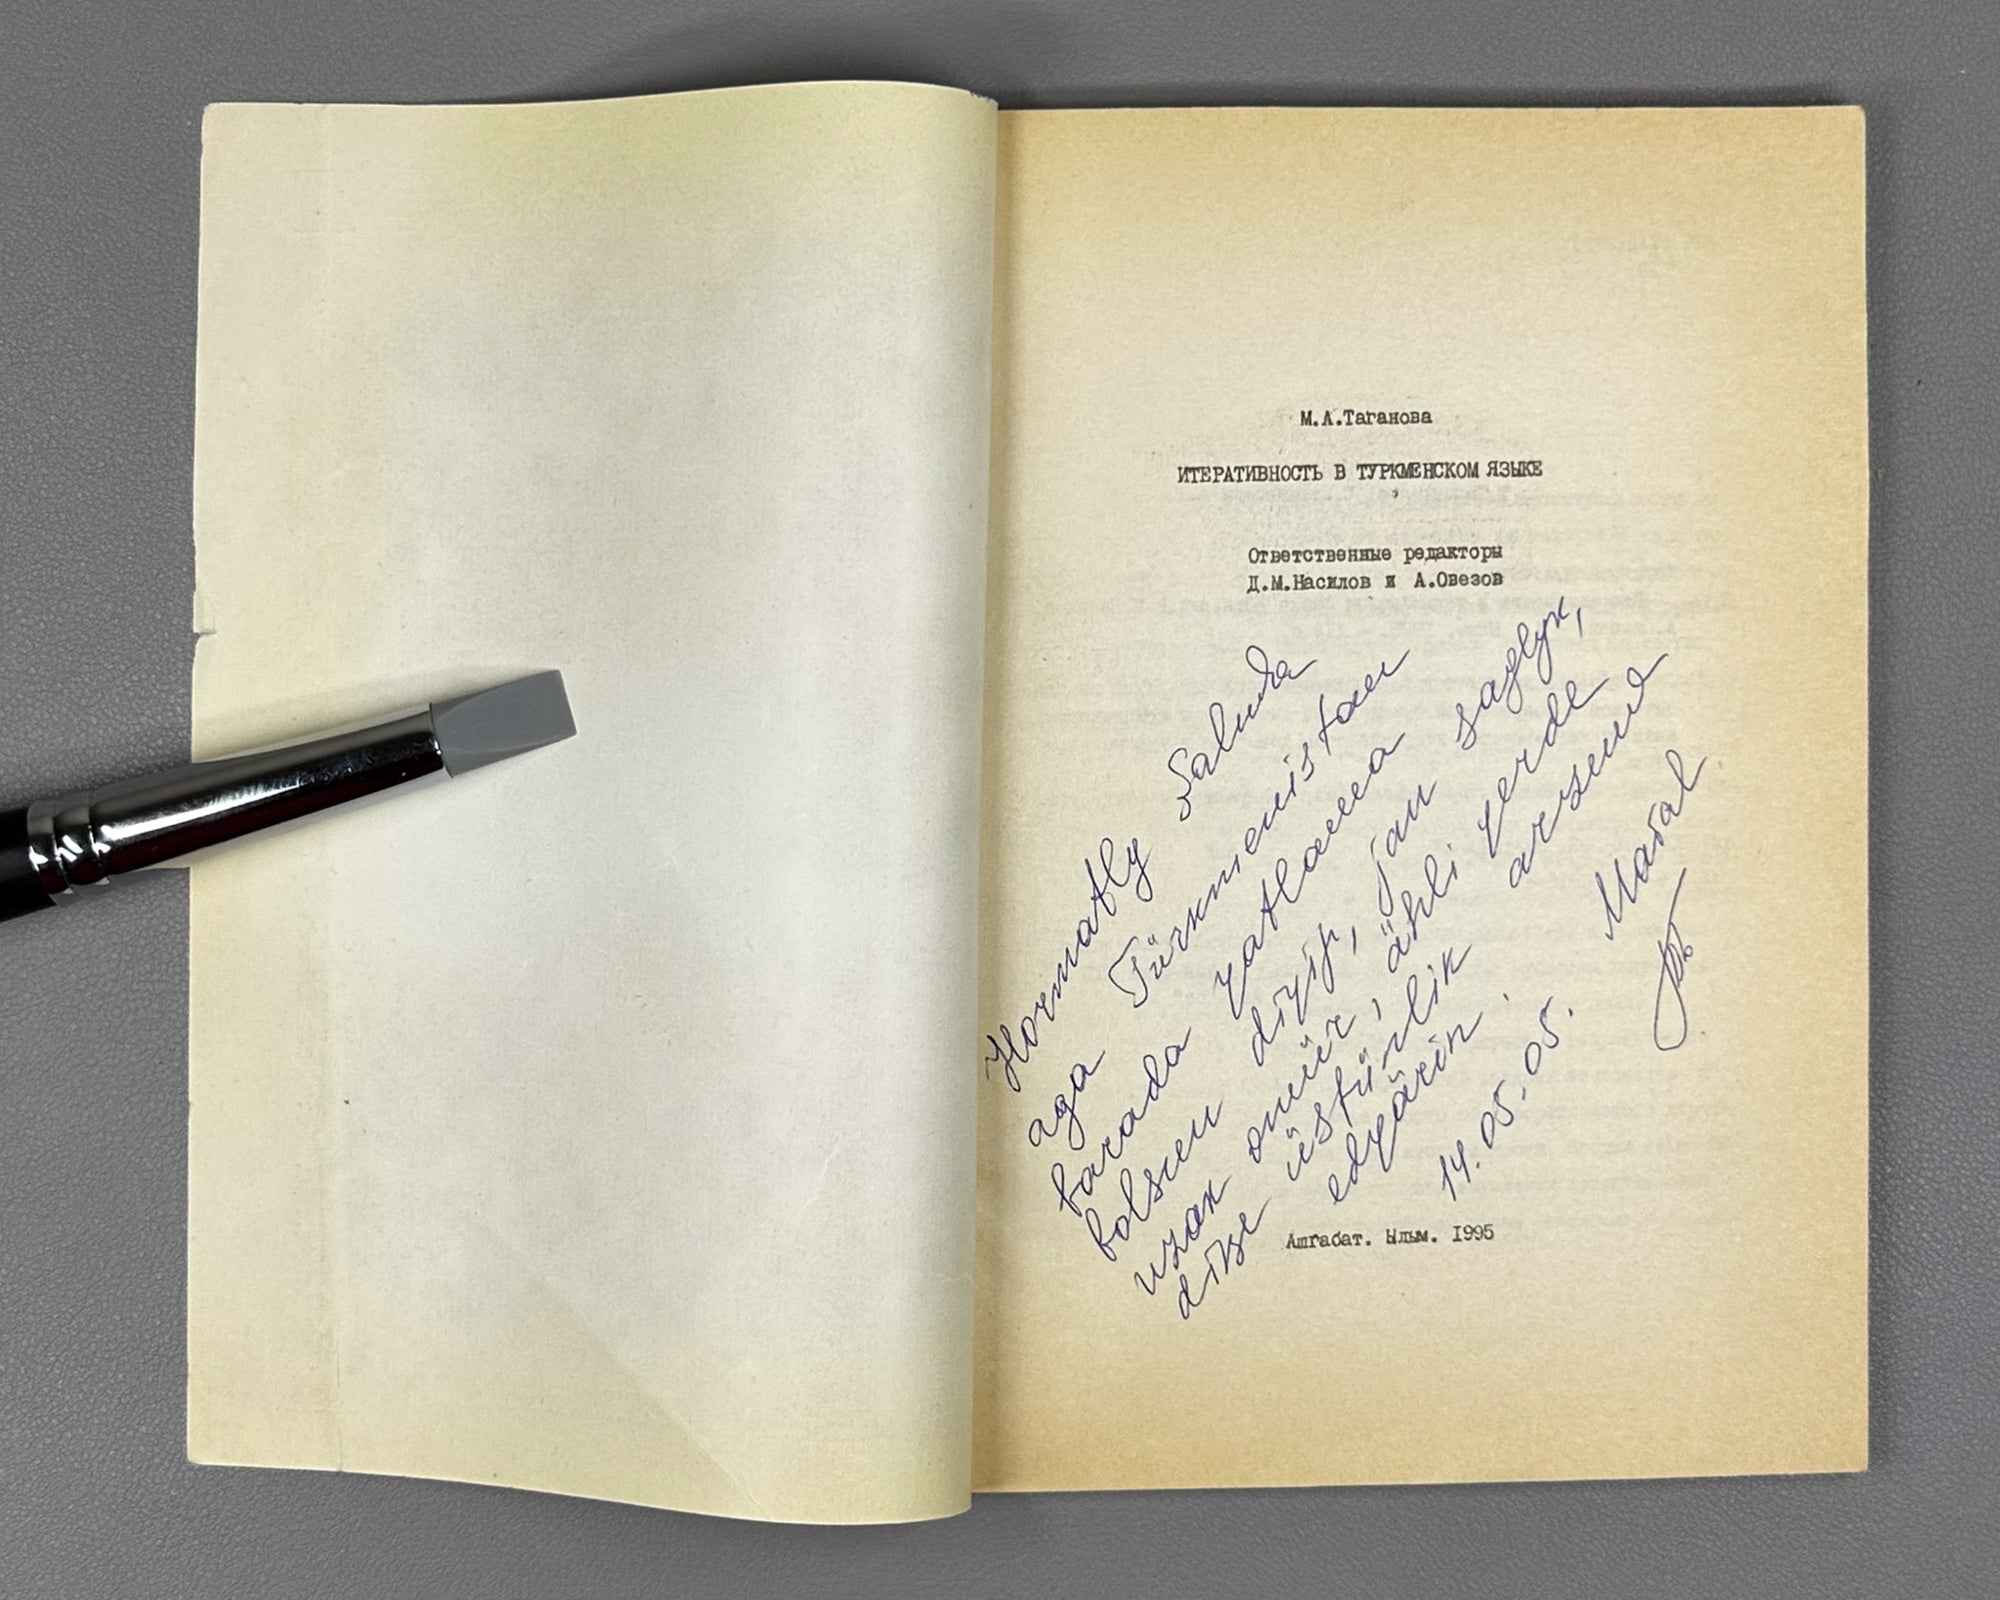 М.А.Таганова
ИТЕРАТИВНОСТЬ В ТУРКМЕНСКОМ ЯЗЫКЕ
Ответственные редакторы
Д.М.Насилов и А.Овезов
Hormatly
aga Türkmenistan
barada ýatlama
bolsun diýip, jan saglyk,
uzak ömür, ähli ýerde
diňe üstünlik arzuw
edýärin.
14.05.05. Maral
Ашгабат. Ылым. 1995